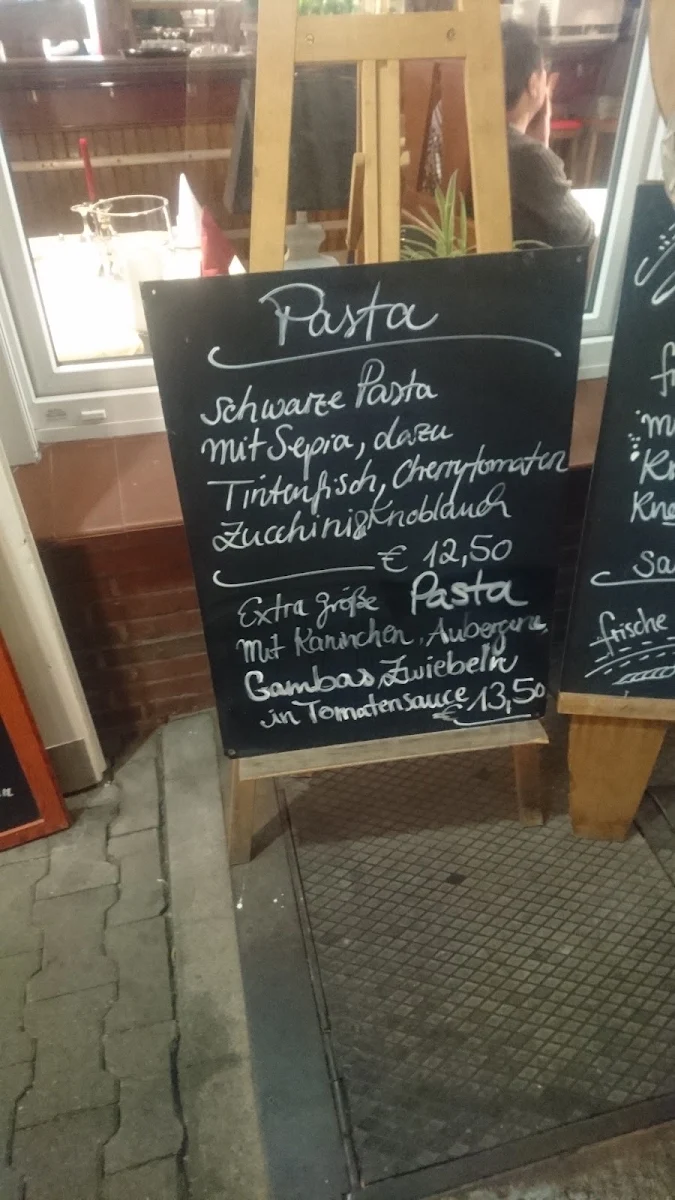 Pasta
schwarze Pasta
mit Sepia, dazu
Tintenfisch, Cherrytomaten
Zucchini & Knoblauch
€ 12,50
Extra große Pasta
mit Kaninchen, Aubergine,
Gambas, Zwiebeln
in Tomatensauce € 13,50
frische